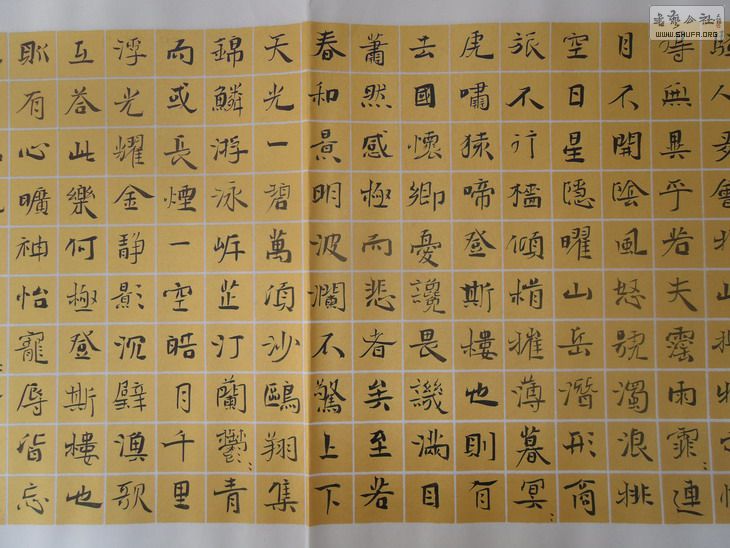 人多會
得無異乎若夫霪雨霏〻連
月不開陰風怒號濁浪排
空日星隱曜山岳潛形商
旅不行檣傾楫摧薄暮冥〻
虎嘯猿啼登斯樓也則有
去國懷鄉憂讒畏譏滿目
蕭然感極而悲者矣至若
春和景明波瀾不驚上下
天光一碧萬頃沙鷗翔集
錦鱗游泳岸芷汀蘭鬱〻青
而或長煙一空皓月千里
浮光耀金靜影沉璧漁歌
互答此樂何極登斯樓也
則有心曠神怡寵辱皆忘
书艺公社
WWW.SHUFA.ORG